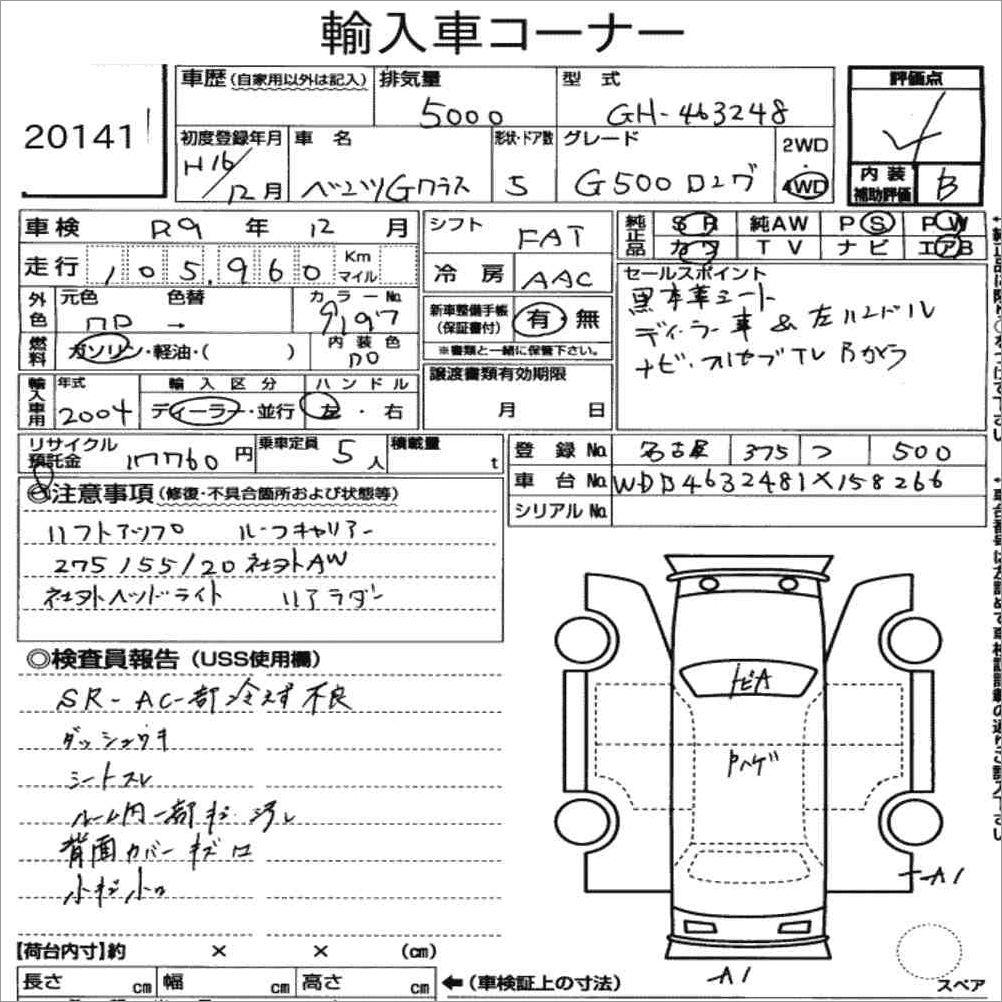 輸入車コーナー
20141
車歴(自家用以外は記入) 排気量 5000 型式 GH-463248
評価点 4
内装補助評価 B
初度登録年月 H16/12月 車名 ベンツGクラス 形状・ドア数 5 グレード G500ロング 2WD・4WD
車検 R9年12月
走行 105,960 Km マイル
外色 元色 色替 → カラーNo. 9197
燃料 ガソリン・軽油・( ) 内装色
輸入車用 年式 2004 輸入区分 ディーラー・並行 ハンドル 左・右
シフト FAT
冷房 AAC
新車整備手帳(保証書付) 有・無
※書類と一緒に保管下さい。
譲渡書類有効期限
月 日
純正品 SR 純AW PS PW
カワ TV ナビ エアB
セールスポイント
黒本革シート
ディーラー車 & 左ハンドル
ナビ・フルセグTV Bカメラ
リサイクル預託金 17760円 乗車定員 5人 積載量 t
登録No. 名古屋 375 つ 500
車台No. WDB4632481X158266
シリアルNo.
◎注意事項(修復・不具合箇所および状態等)
リフトアップ ルーフキャリアー
275/55/20 社外AW
社外ヘッドライト リアラダー
◎検査員報告(USS使用欄)
SR-AC一部冷えず不良
ダッシュウキ
シートスレ
ルーム内一部キズ 汚レ
背面カバーキズ
小キズ小
トビA
Pハゲ
A1
A1
スペア
【荷台内寸】約 × × (cm)
長さ cm 幅 cm 高さ cm ←(車検証上の寸法)